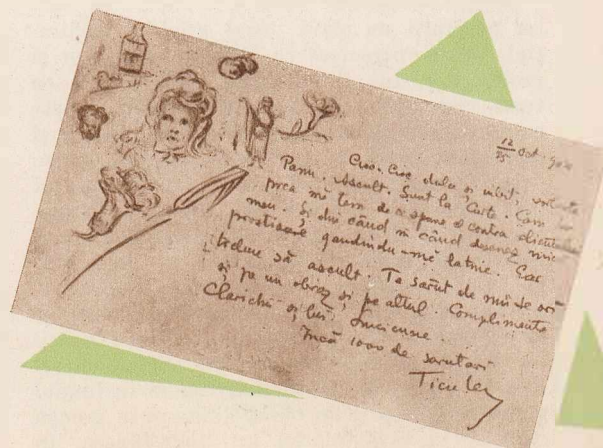 12/25 Oct. 904
Cuc. Cuc dulce și iubit,
Panu. Ascult. Sunt la Curte. Cam
prea mă tem de a spune contra
meu. Și din când în când desenez mici
prostioare gândindu-mă la tine. Ear
trebue să ascult. Te sărut de mii de ori
și pe un obraz și pe altul. Complimente
Clarichii și lui
Încă 1000 de sărutări